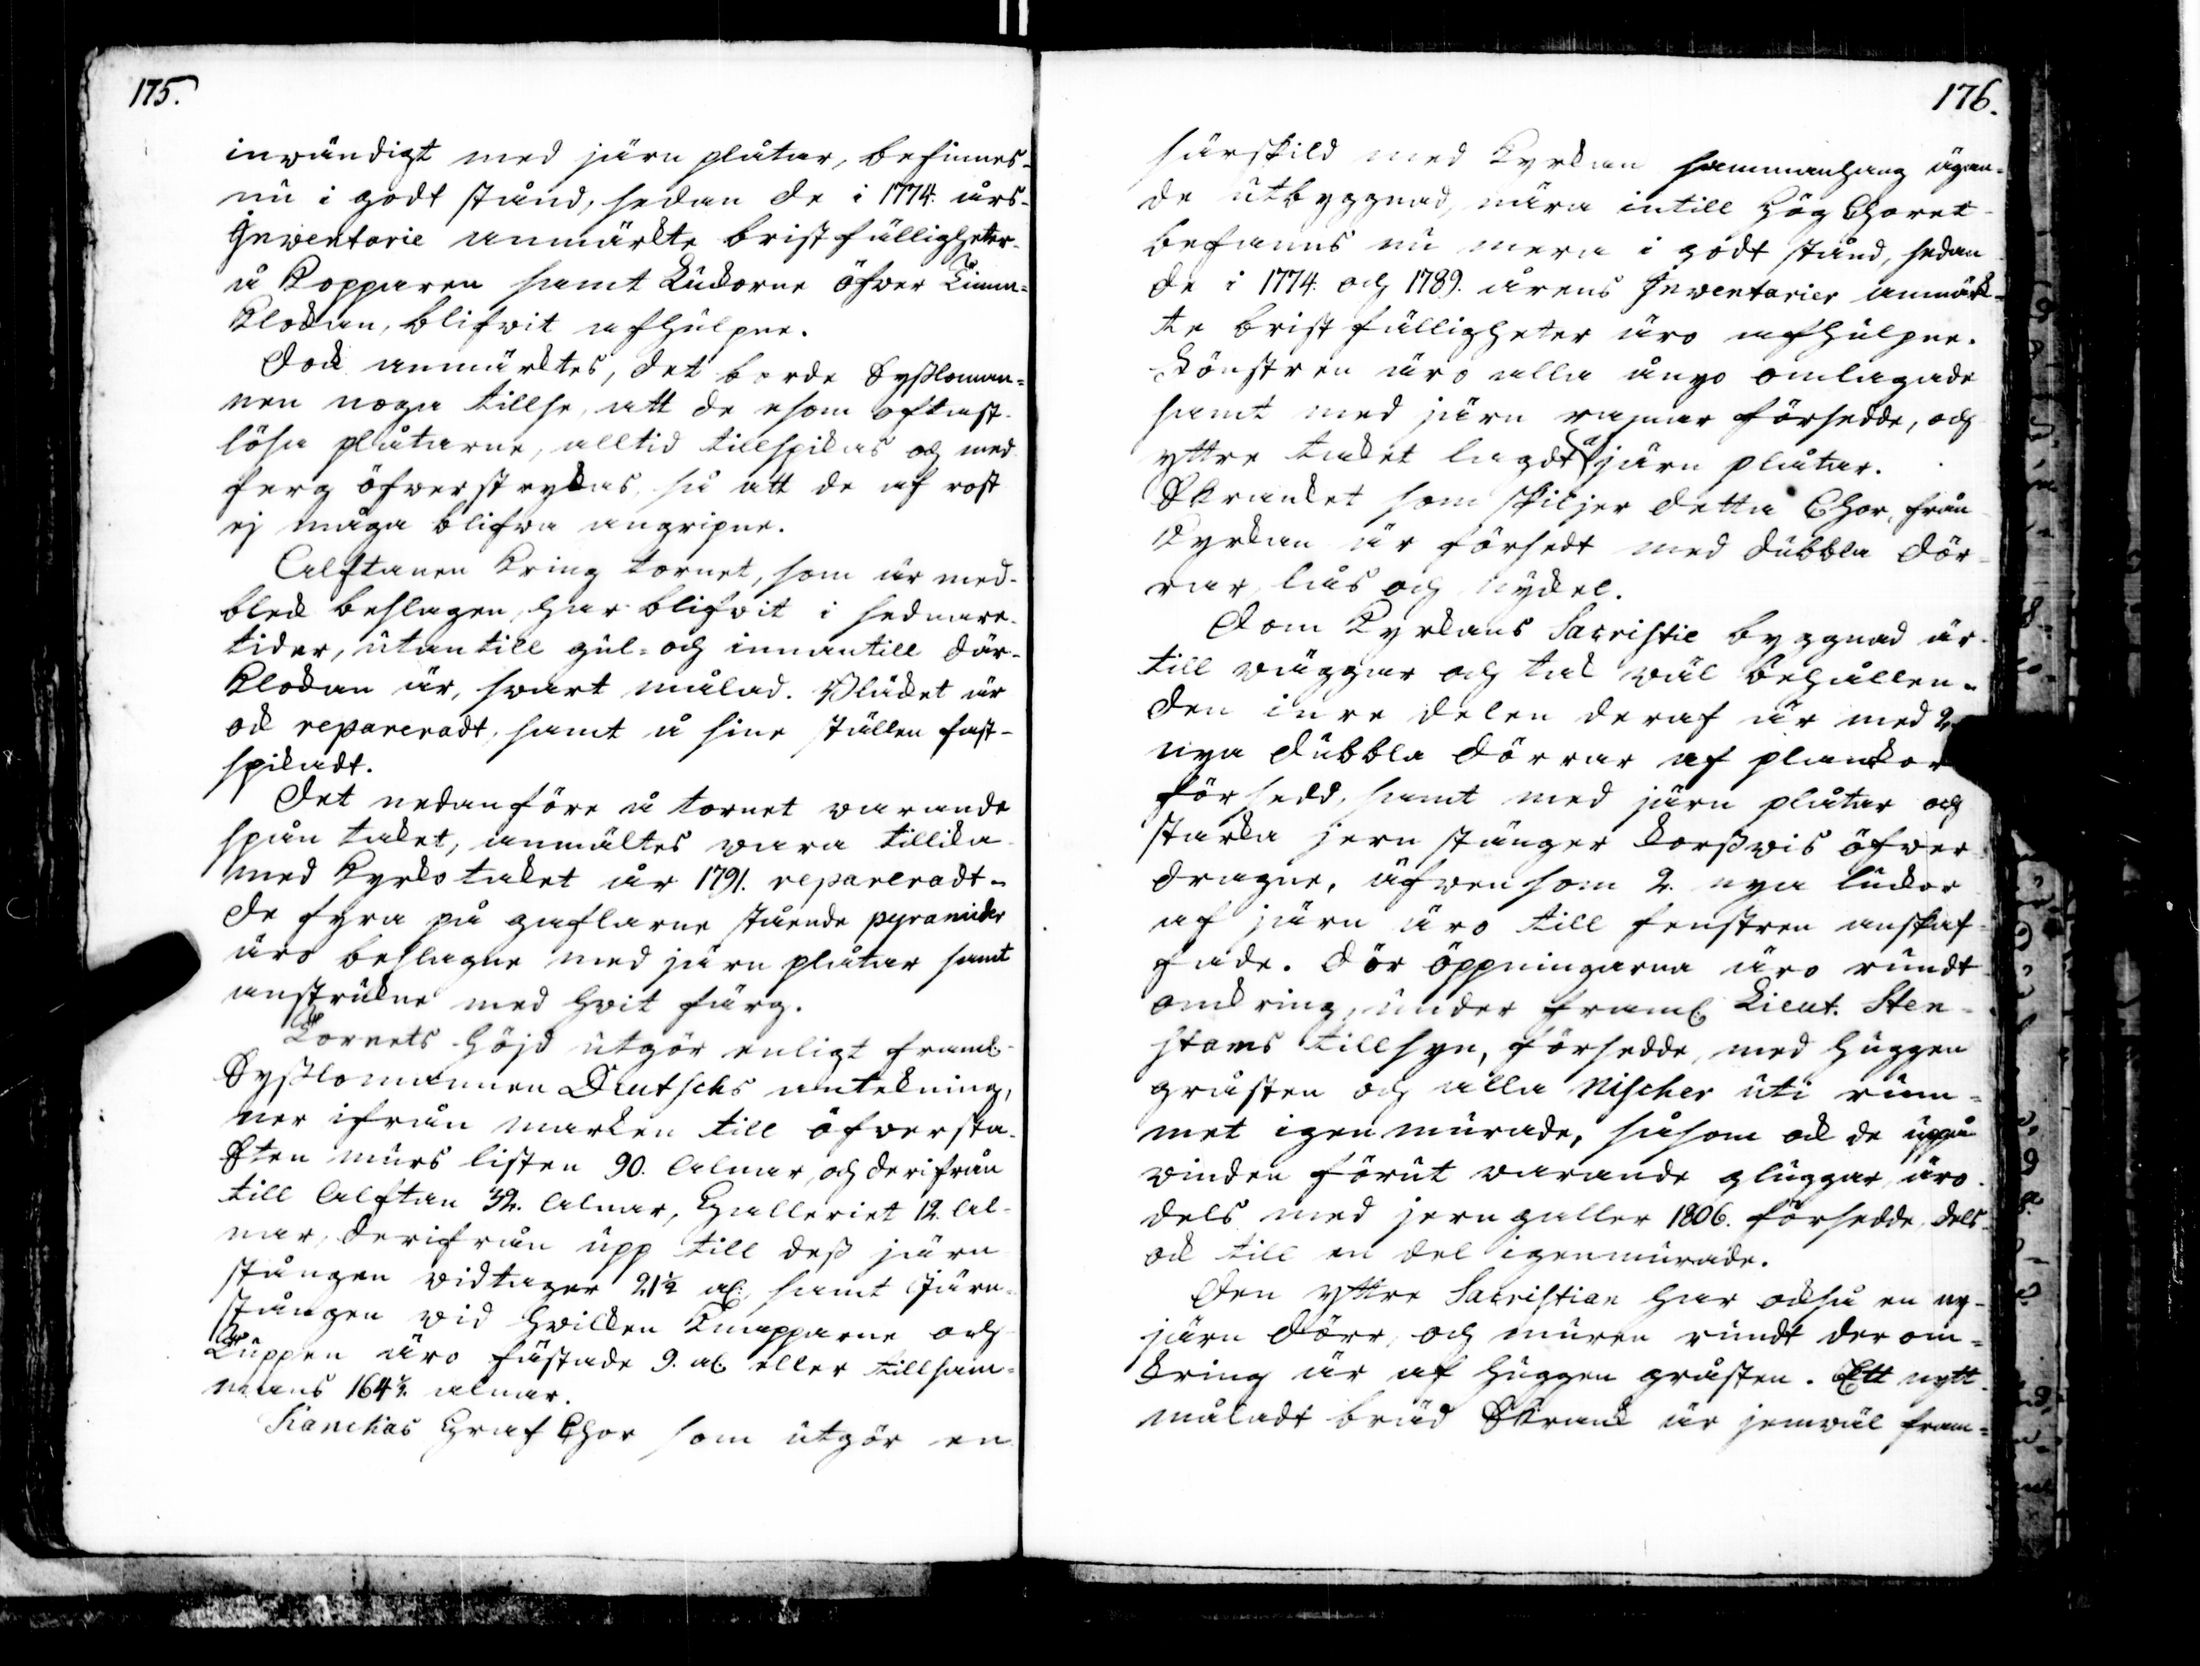 175.
inwändigt med järn plåtar, befinnes
nu i godt stånd, sedan de i 1774. års
Inventarie anmärkte bristfälligheter
å Kopparen samt Luckorne öfver Timm-
Klockan, blifvit afhulpne.
Dock anmärktes, det borde Sysloman-
nen noga tillse, att de esom oftast
lösa plåtarne, alltid tillspikas och med
ferg öfverstrykas, så att de af rost
ej måga blifva angripne.
Alftanen Kring tornet, som är med
bleck beslagen, har blifvit i sednare
tider, utantill gul- och innantill där
Klockan är, svart målad. Plåcket är
ock repareradt, samt å sine ställen fast-
spikadt.
Det nedanföre å tornet varande
spån taket, anmältes vara tillika
med Kyrko taket år 1791. repareradt.
De fyra på gaflarne stående pyramider
äro beslagne med järn plåtar samt
anstrukne med hvit färg.
Tornets höjd utgör enligt framl.
Syslomannen Deutschs antekning,
ner ifrån marken till öfversta
Sten murs listen 90. Alnar, och derifrån
till Alftan 32. Alnar, Galleriet 12. Al-
nar, derifrån upp till dess järn
stången vidtager 21½ al:, samt Järn-
stången vid hvilken Knapparne och
Tuppen äro fästade 9. al. eller tillsam-
mans 164½ alnar.
Kanckas Graf Chor som utgör en
176.
särskild med Kyrkan sammanhang ägan-
de utbyggnad, nära intill Hög Choret
befanns nu mera i godt stånd, sedan
de i 1774. och 1789. årens Inventarier anmärk-
te bristfälligheter äro afhulpne.
Fönstren äro alla ånyo omlagade
samt med järn ramar försedde, och
yttre taket lagdt å järn plåtar.
Skranket som skiljer detta Chor från
Kyrkan är försedt med dubbla dör-
rar, lås och nyckel.
Dom Kyrkans Sacristie byggnad är
till väggar och tak väl behållen.
Den inre delen deraf är med 2.
nya dubbla dörrar af plankor
försedd, samt med järn plåtar och
starka jern stänger korssvis öfver
dragne, äfvensom 2. nya luckor
af järn äro till fenstren anskaf-
fade. Dör öppningarna äro rundt
omkring, under framl. Lieut. Sten-
stams tillsyn, försedde, med huggen
gråsten och alla Nischer uti rum-
met igenmurade, såsom ock de uppå
vinden förut varande gluggar, äro
dels med jerngaller 1806. försedde, dels
ock till en del igenmurade.
Den yttre Sacristian har också en ny
järn dörr, och muren rundt derom-
kring är af huggen gråsten. Ett nytt
måladt bräd Skrank är jemväl fram-